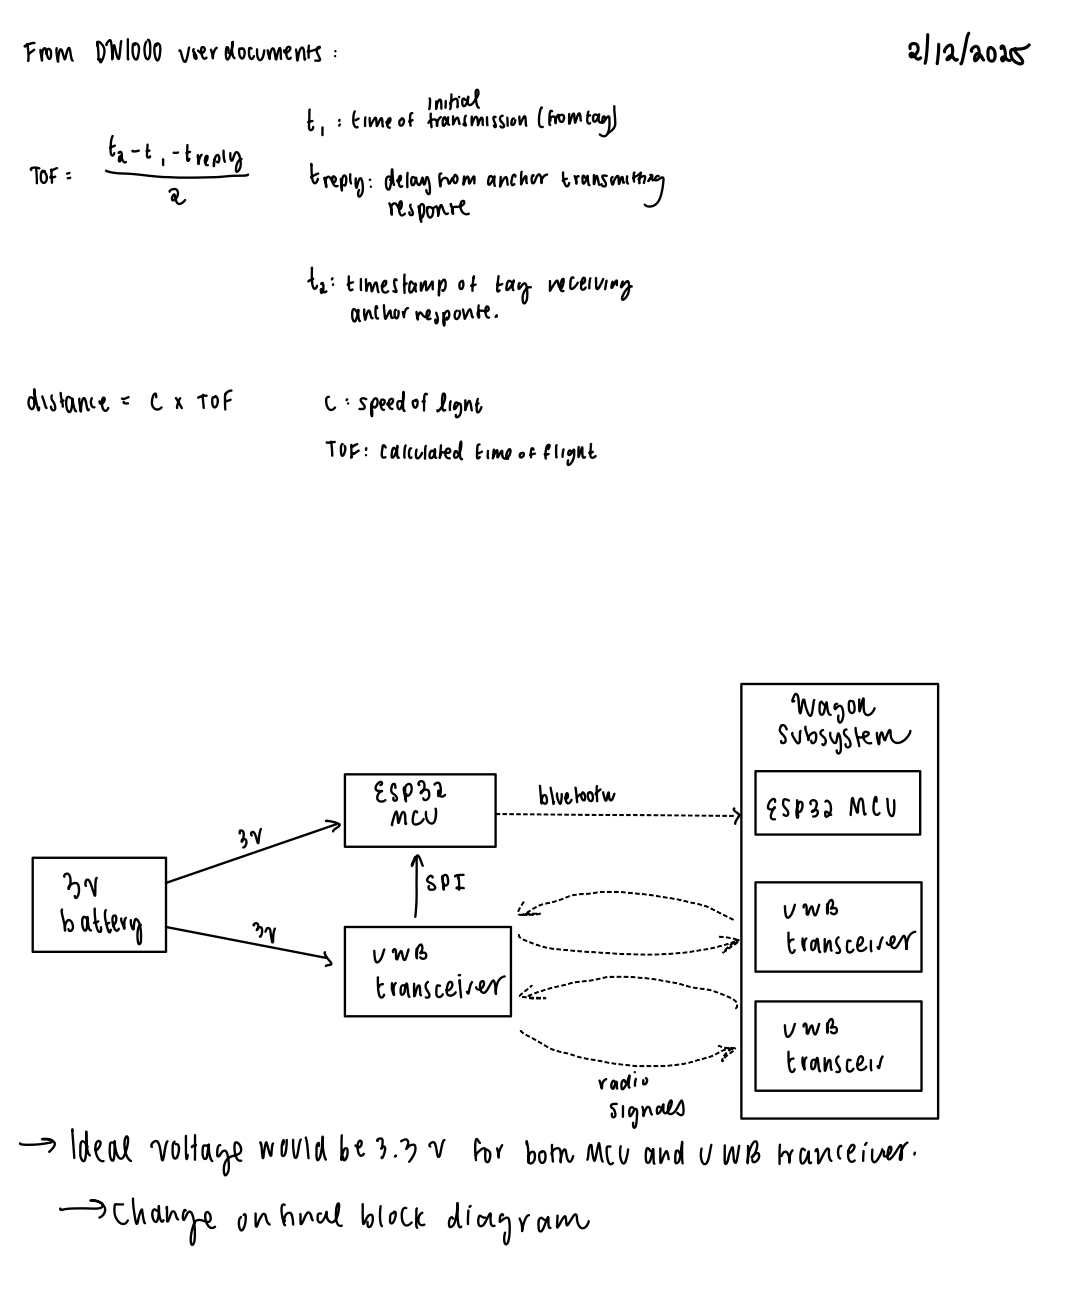 From DW1000 user documents :
2/12/2025
TOF = (t2 - t1 - treply) / 2
t1 : time of initial transmission (from tag)
treply: delay from anchor transmitting
response
t2: timestamp of tag receiving
anchor response.
distance = C x TOF
C : speed of light
TOF: Calculated time of flight
Wagon
Subsystem
ESP32
MCU
bluetooth
ESP32 MCU
3V
3V
battery
SPI
3V
UWB
transceiver
UWB
transceiver
UWB
transceiv
radio
signals
→ Ideal voltage would be 3.3 V for both MCU and UWB tranceiver.
→ Change on final block diagram